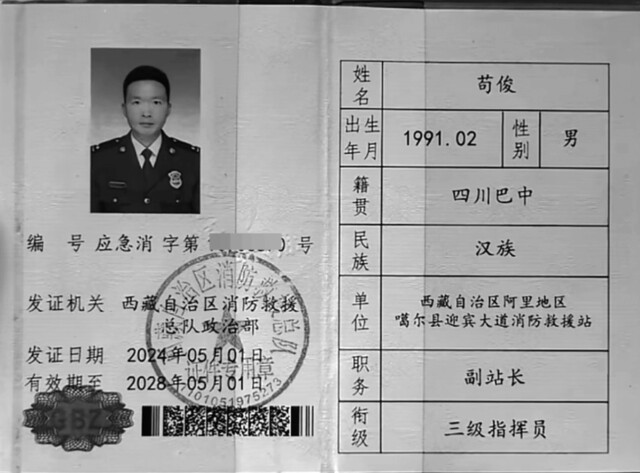 编 号 应急消 字第 0 号
发证机关 西藏自治区消防救援
总队政治部
发证日期 2024年05月01日
有效期至 2028年05月01日
证件专用章
GBZ
姓名 苟俊
出生年月 1991.02 性别 男
籍贯 四川巴中
民族 汉族
单位 西藏自治区阿里地区
噶尔县迎宾大道消防救援站
职务 副站长
衔级 三级指挥员